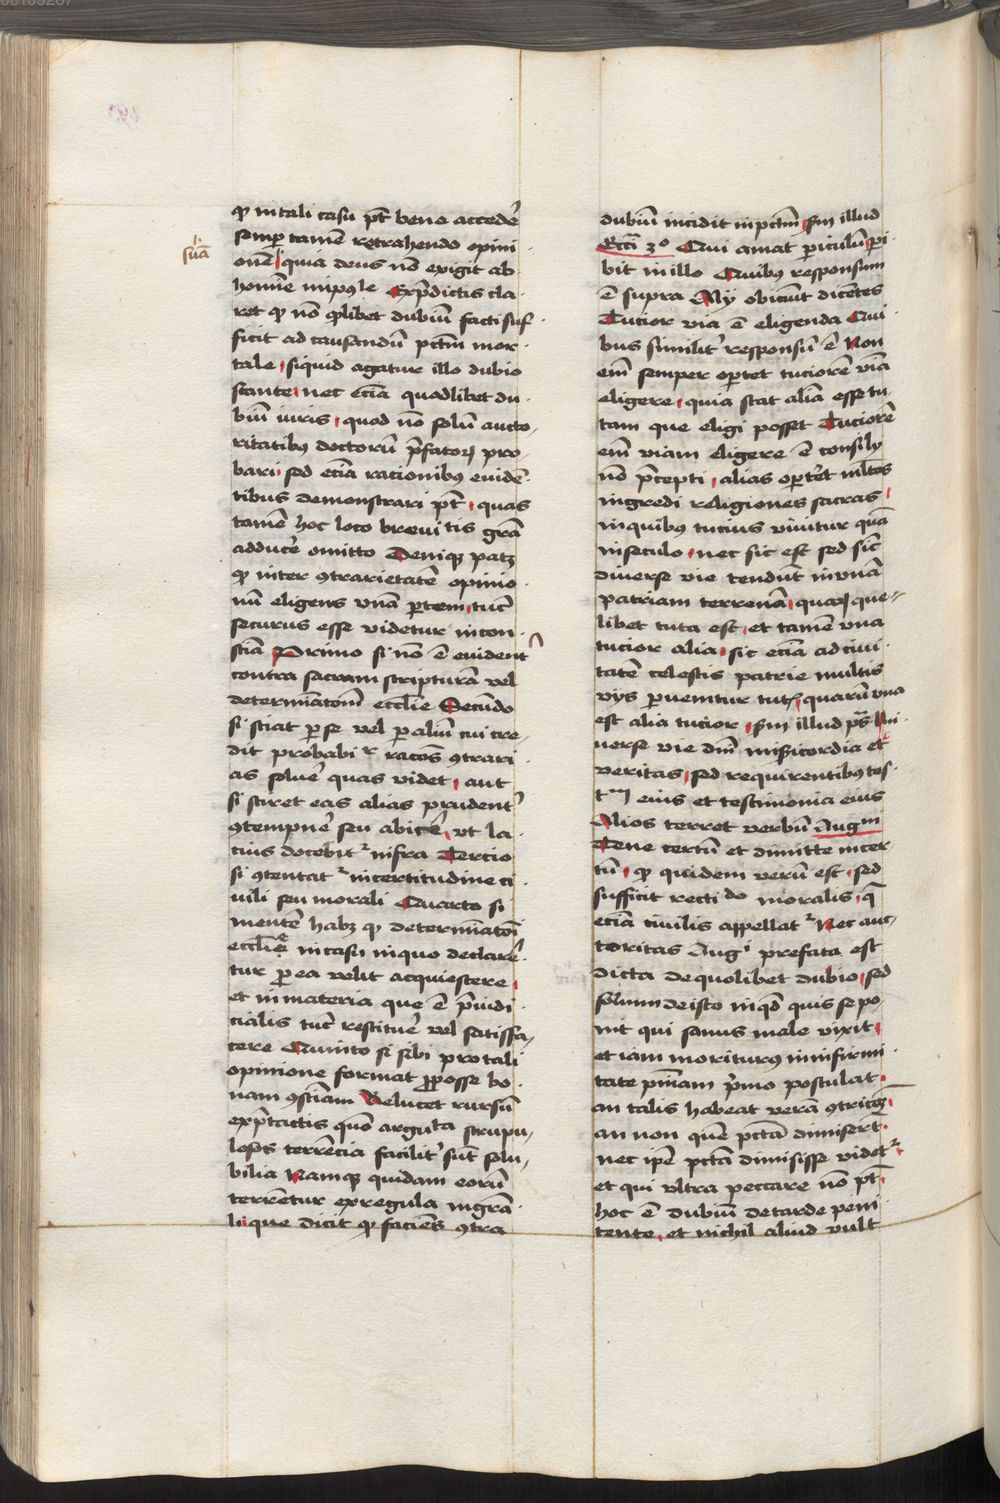 qꝫ in tali casu pt̄ bene acceder̄
semp̱ tamē retrahendo opini
onē i̇ suā quia deus nō exigit ab
homīne inpꝰle Exp̄dictis cla
ret qꝫ nō qͥlibet dubiū facti suf
ficit ad causandū pctm̄ mor
tale siquid agatur illo dubio
stante nec ecīa quodlibet du
biū iuris quod nō solū aucto
ritatibus doctorū p̄fatoꝝ pro
bari sed ecīa racionibus euidē
tibus demonstrari pt̄ quas
tamē hoc loco breuitatis grā
adducēr omitto Deniqꝫ patꝫ
qꝫ inter ꝯtrarietatē opinio
nū eligens vnā ꝑtem tūc
securus esse videtur in con
sciā Primo si nō ē euident̄
contra sacram scripturā vel
determīatom̄ ecclīe Secūdo
si sciat ꝑ se vel ꝑ aliū cui cre
dit probabilr̄ racōes ꝯtrari
as soluēr quas videt aut
si sciret eas alias prudent̄
ꝯtempnēr seu abicēr vt la
cius docebit᷑ infra Tercio
si ꝯtentat᷑ incertitudine ci
uili seu morali Quarto si
mentē habꝫ qꝫ determīatōi
ecclīe in casu in quo declare
tur ꝑ ea velit acquiescere
et in materia que ē p̄iudi
cialis tūc restituēr vel satisfa
cere Quinto si sibi pro tali
opinione format ꝓposse bo
nam ꝯsciam Relucet rursū
exp̄tactis quō argūta scrupu
losos terrēcia facilit̄ sūt solu
bilia Namqꝫ quidam eorū
terrētur ex regula in grā
li que dicit qꝫ faciēs ꝯtra
dubiū incidit in pctm̄ scdm̄ illud
Ecci 3º Qui amat periculū ꝑi
bit in illo Quibus responsum
ē supra Aly obiciūt dicētes
Tucior via ē eligenda Qui
bus similit̄ responsū ē Non
em̄ semper oꝑtet tuciorē viā
eligere quia stat aliā esse tu
tam que eligi posset Tuciorē
em̄ viam eligere ē consily
nō p̄cepti alias oꝑtet m̄ltos
ingredi religiones sacras
in quibꝰ tucius viuitur quā
in seculo nec sic est sed sic̄
diuerse vie tendūt in vnā
patriam terrenā quaꝝ que
libet tuta est et tamē vna
tucior alia sic ecīa ad ciui
tatē celestis patrie multis
vys ꝑuenitur tute quarū vna
est alia tucior scdm̄ illud ps̄ Vni
uerse vie dn̄i misericordia et
veritas sed requirentibus tes
tᵐ eius et testimonia eius
Alios terret verbū Augᵐⁱ
Tene certū et dimitte incer
tū qꝫ quidem verū est sed
sufficit rectido moralis q̄
ecīa ciuilis appellat᷑ Nec auc
toritas Augⁱ prefata est
dicta de quolibet dubio sed
solum de isto in qd̄ quis se po
nit qui sanus male vixit
et iam moriturꝰ in infirmi
tate pn̄iam p̄mo postulat
an talis habeat verā ꝯtricōꝫ
an non quē pctā dimiserūt
nec ip̄e pctā dimisisse videt᷑
et qui vltra peccare nō pt̄
hoc ē dubiū de tarde peni
tente et nichil aliud vult